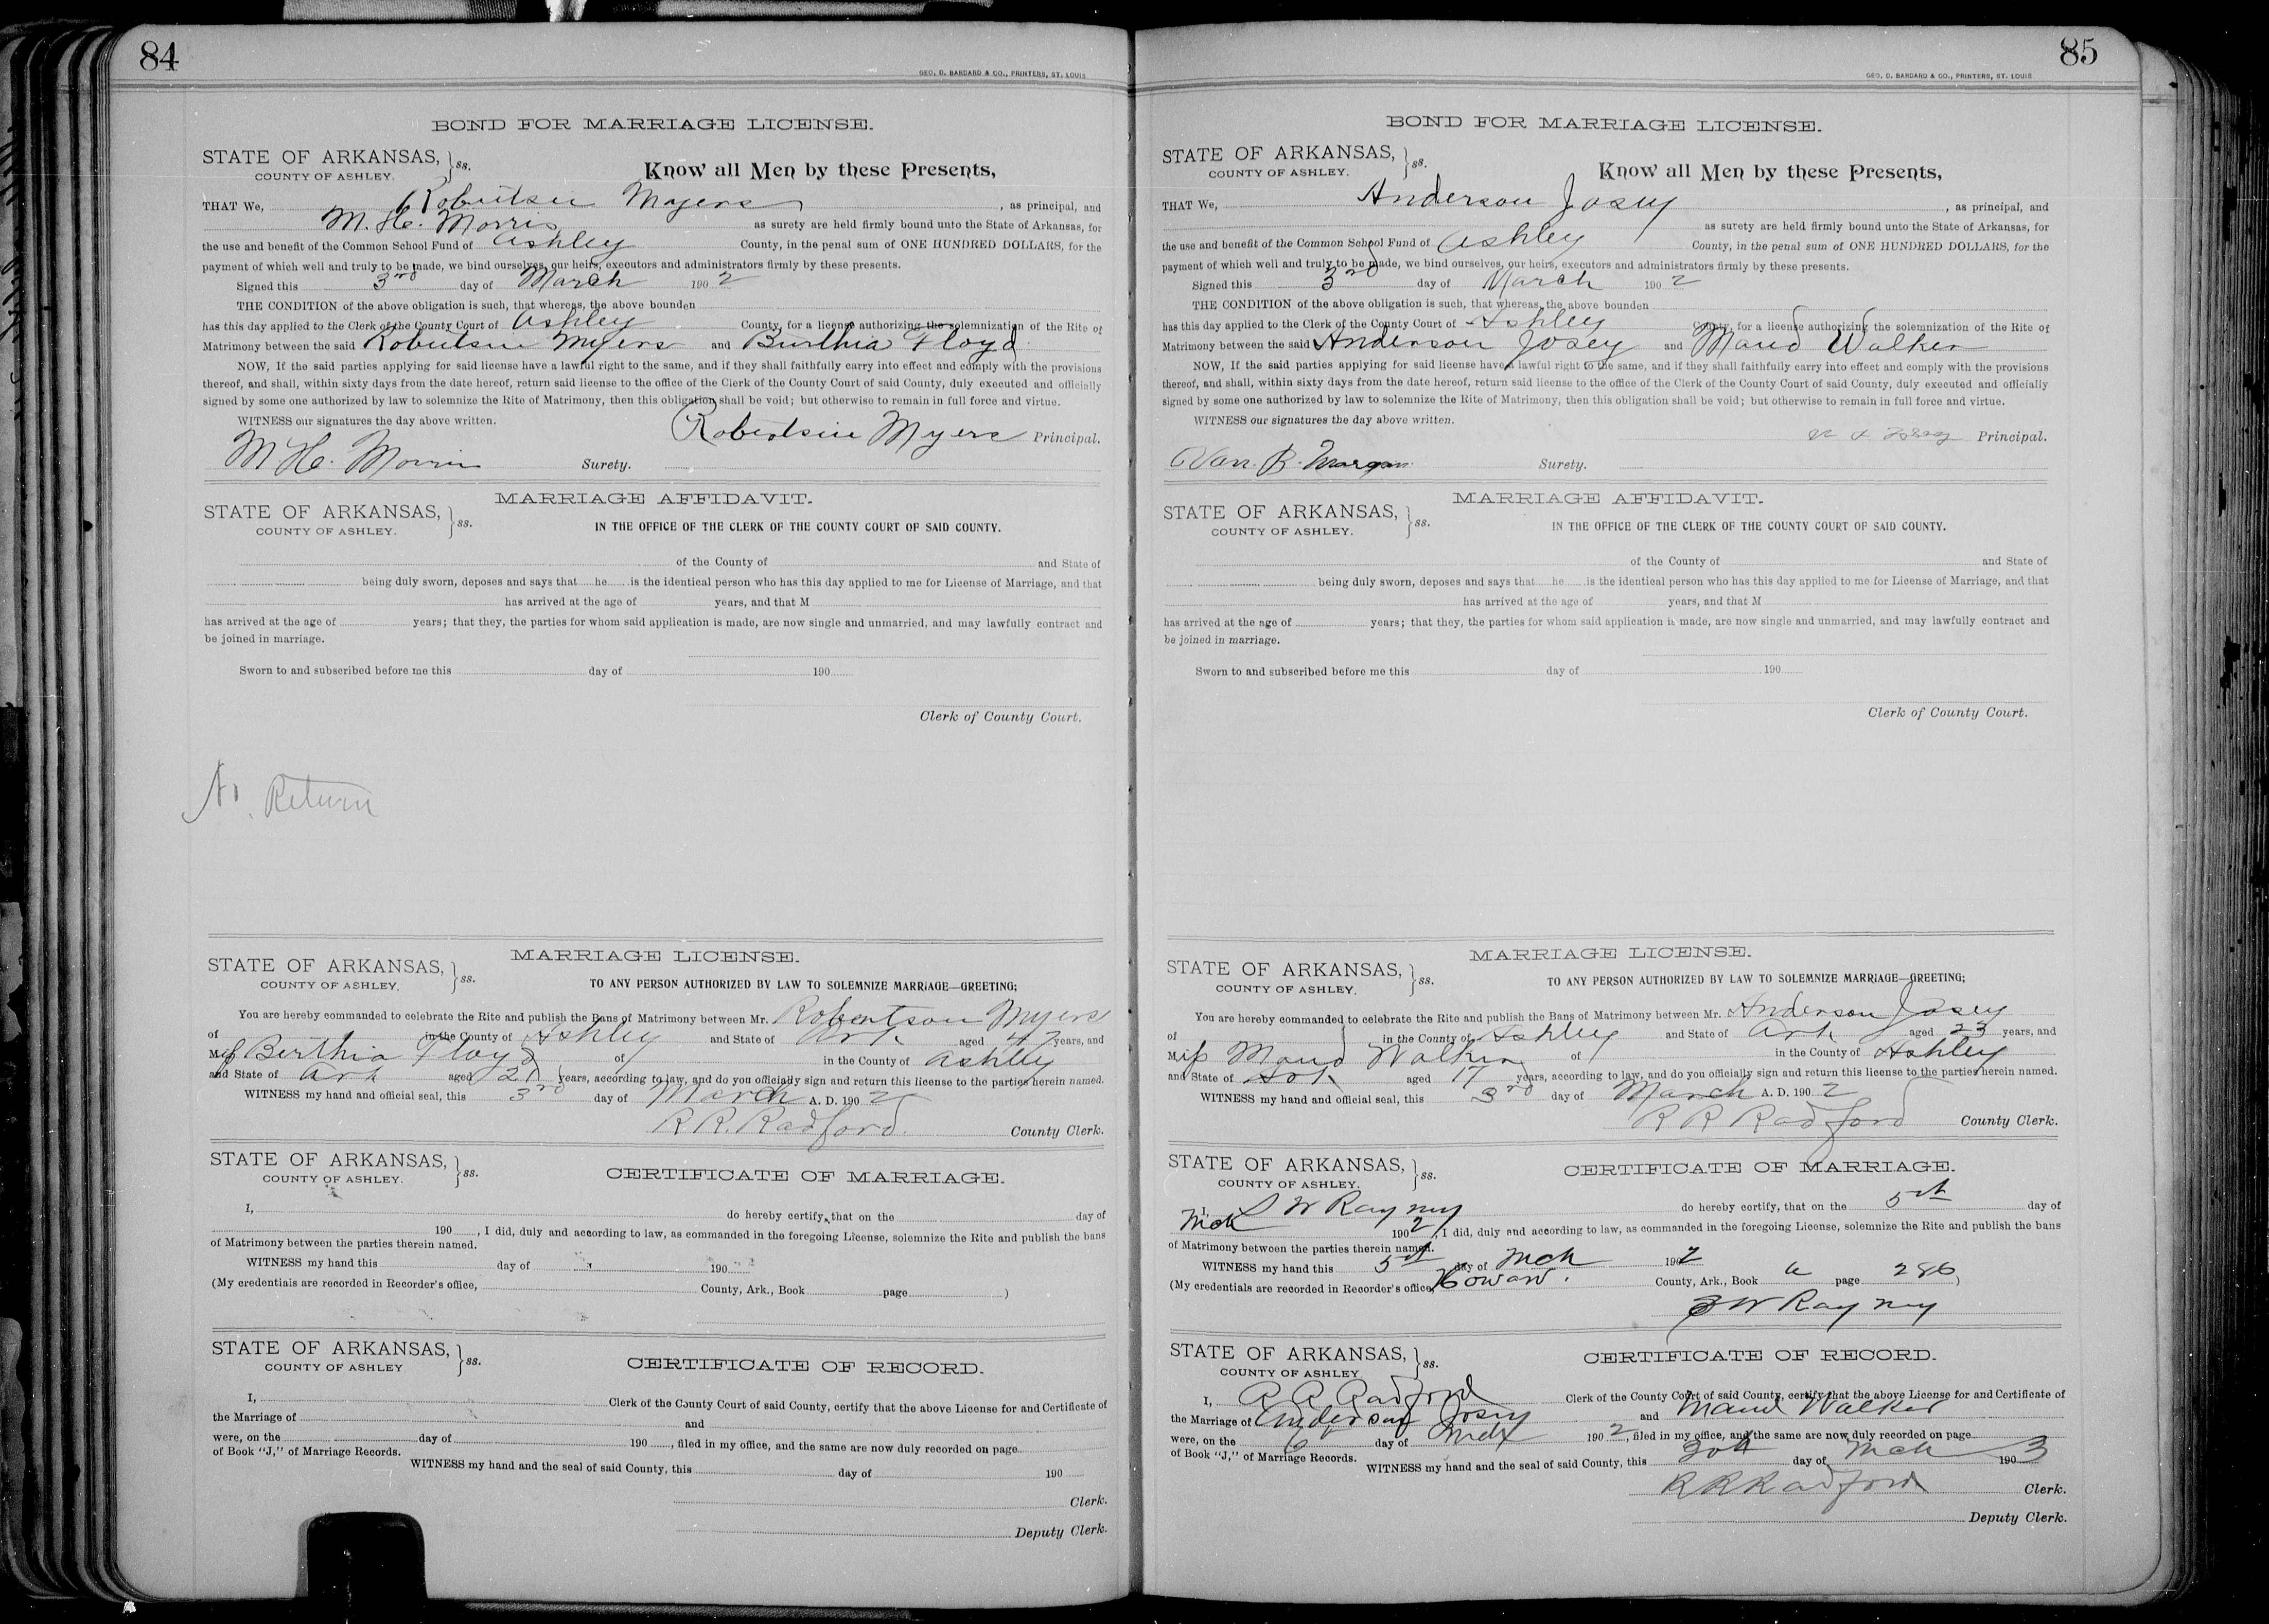 84
GEO. D. BARDARD & CO., PRINTERS, ST. LOUIS
BOND FOR MARRIAGE LICENSE.
STATE OF ARKANSAS, } ss.
COUNTY OF ASHLEY.
Know all Men by these Presents,
THAT We, Robertson Myers, as principal, and
M. H. Morris as surety are held firmly bound unto the State of Arkansas, for
the use and benefit of the Common School Fund of Ashley County, in the penal sum of ONE HUNDRED DOLLARS, for the
payment of which well and truly to be made, we bind ourselves, our heirs, executors and administrators firmly by these presents.
Signed this 3rd day of March 1902
THE CONDITION of the above obligation is such, that whereas, the above bounden
has this day applied to the Clerk of the County Court of Ashley County, for a license authorizing the solemnization of the Rite of
Matrimony between the said Robertson Myers and Burthia Floyd
NOW, If the said parties applying for said license have a lawful right to the same, and if they shall faithfully carry into effect and comply with the provisions
thereof, and shall, within sixty days from the date hereof, return said license to the office of the Clerk of the County Court of said County, duly executed and officially
signed by some one authorized by law to solemnize the Rite of Matrimony, then this obligation shall be void; but otherwise to remain in full force and virtue.
WITNESS our signatures the day above written.
Robertson Myers Principal.
M. H. Morris Surety.
MARRIAGE AFFIDAVIT.
STATE OF ARKANSAS, } ss.
COUNTY OF ASHLEY.
IN THE OFFICE OF THE CLERK OF THE COUNTY COURT OF SAID COUNTY.
of the County of and State of
being duly sworn, deposes and says that he is the identical person who has this day applied to me for License of Marriage, and that
has arrived at the age of years, and that M
has arrived at the age of years; that they, the parties for whom said application is made, are now single and unmarried, and may lawfully contract and
be joined in marriage.
Sworn to and subscribed before me this day of 190
Clerk of County Court.
No Return
MARRIAGE LICENSE.
STATE OF ARKANSAS, } ss.
COUNTY OF ASHLEY.
TO ANY PERSON AUTHORIZED BY LAW TO SOLEMNIZE MARRIAGE—GREETING;
You are hereby commanded to celebrate the Rite and publish the Bans of Matrimony between Mr. Robertson Myers
of in the County of Ashley and State of Ark aged 47 years, and
Miss Berthia Floyd of in the County of Ashley
and State of Ark aged 21 years, according to law, and do you officially sign and return this license to the parties herein named.
WITNESS my hand and official seal, this 3rd day of March A. D. 1902
R. R. Radford County Clerk.
STATE OF ARKANSAS, } ss.
COUNTY OF ASHLEY.
CERTIFICATE OF MARRIAGE.
I, do hereby certify, that on the day of
190 , I did, duly and according to law, as commanded in the foregoing License, solemnize the Rite and publish the bans
of Matrimony between the parties therein named.
WITNESS my hand this day of 190
(My credentials are recorded in Recorder's office, County, Ark., Book page )
STATE OF ARKANSAS, } ss.
COUNTY OF ASHLEY
CERTIFICATE OF RECORD.
I, Clerk of the County Court of said County, certify that the above License for and Certificate of
the Marriage of and
were, on the day of 190 , filed in my office, and the same are now duly recorded on page
of Book "J," of Marriage Records.
WITNESS my hand and the seal of said County, this day of 190
Clerk.
Deputy Clerk.
85
GEO. D. BARDARD & CO., PRINTERS, ST. LOUIS
BOND FOR MARRIAGE LICENSE.
STATE OF ARKANSAS, } ss.
COUNTY OF ASHLEY.
Know all Men by these Presents,
THAT We, Anderson Josey, as principal, and
as surety are held firmly bound unto the State of Arkansas, for
the use and benefit of the Common School Fund of Ashley County, in the penal sum of ONE HUNDRED DOLLARS, for the
payment of which well and truly to be made, we bind ourselves, our heirs, executors and administrators firmly by these presents.
Signed this 3rd day of March 1902
THE CONDITION of the above obligation is such, that whereas, the above bounden
has this day applied to the Clerk of the County Court of Ashley County, for a license authorizing the solemnization of the Rite of
Matrimony between the said Anderson Josey and Maud Walker
NOW, If the said parties applying for said license have a lawful right to the same, and if they shall faithfully carry into effect and comply with the provisions
thereof, and shall, within sixty days from the date hereof, return said license to the office of the Clerk of the County Court of said County, duly executed and officially
signed by some one authorized by law to solemnize the Rite of Matrimony, then this obligation shall be void; but otherwise to remain in full force and virtue.
WITNESS our signatures the day above written.
Principal.
Van. B. Morgan Surety.
MARRIAGE AFFIDAVIT.
STATE OF ARKANSAS, } ss.
COUNTY OF ASHLEY.
IN THE OFFICE OF THE CLERK OF THE COUNTY COURT OF SAID COUNTY.
of the County of and State of
being duly sworn, deposes and says that he is the identical person who has this day applied to me for License of Marriage, and that
has arrived at the age of years, and that M
has arrived at the age of years; that they, the parties for whom said application is made, are now single and unmarried, and may lawfully contract and
be joined in marriage.
Sworn to and subscribed before me this day of 190
Clerk of County Court.
MARRIAGE LICENSE.
STATE OF ARKANSAS, } ss.
COUNTY OF ASHLEY.
TO ANY PERSON AUTHORIZED BY LAW TO SOLEMNIZE MARRIAGE—GREETING;
You are hereby commanded to celebrate the Rite and publish the Bans of Matrimony between Mr. Anderson Josey
of in the County of Ashley and State of Ark aged 23 years, and
Miss Maud Walker of in the County of Ashley
and State of Ark aged 17 years, according to law, and do you officially sign and return this license to the parties herein named.
WITNESS my hand and official seal, this 3rd day of March A. D. 1902
R R Radford County Clerk.
STATE OF ARKANSAS, } ss.
COUNTY OF ASHLEY.
CERTIFICATE OF MARRIAGE.
I, S W Rayney do hereby certify, that on the 5th day of
Mch 1902, I did, duly and according to law, as commanded in the foregoing License, solemnize the Rite and publish the bans
of Matrimony between the parties therein named.
WITNESS my hand this 5th day of Mch 1902
(My credentials are recorded in Recorder's office, Howard. County, Ark., Book a page 286 )
S W Rayney
STATE OF ARKANSAS, } ss.
COUNTY OF ASHLEY
CERTIFICATE OF RECORD.
I, R R Radford Clerk of the County Court of said County, certify that the above License for and Certificate of
the Marriage of Anderson Josey and Maud Walker
were, on the 6 day of Mch 1902, filed in my office, and the same are now duly recorded on page
of Book "J," of Marriage Records.
WITNESS my hand and the seal of said County, this 30th day of Mch 1903
R R Radford Clerk.
Deputy Clerk.